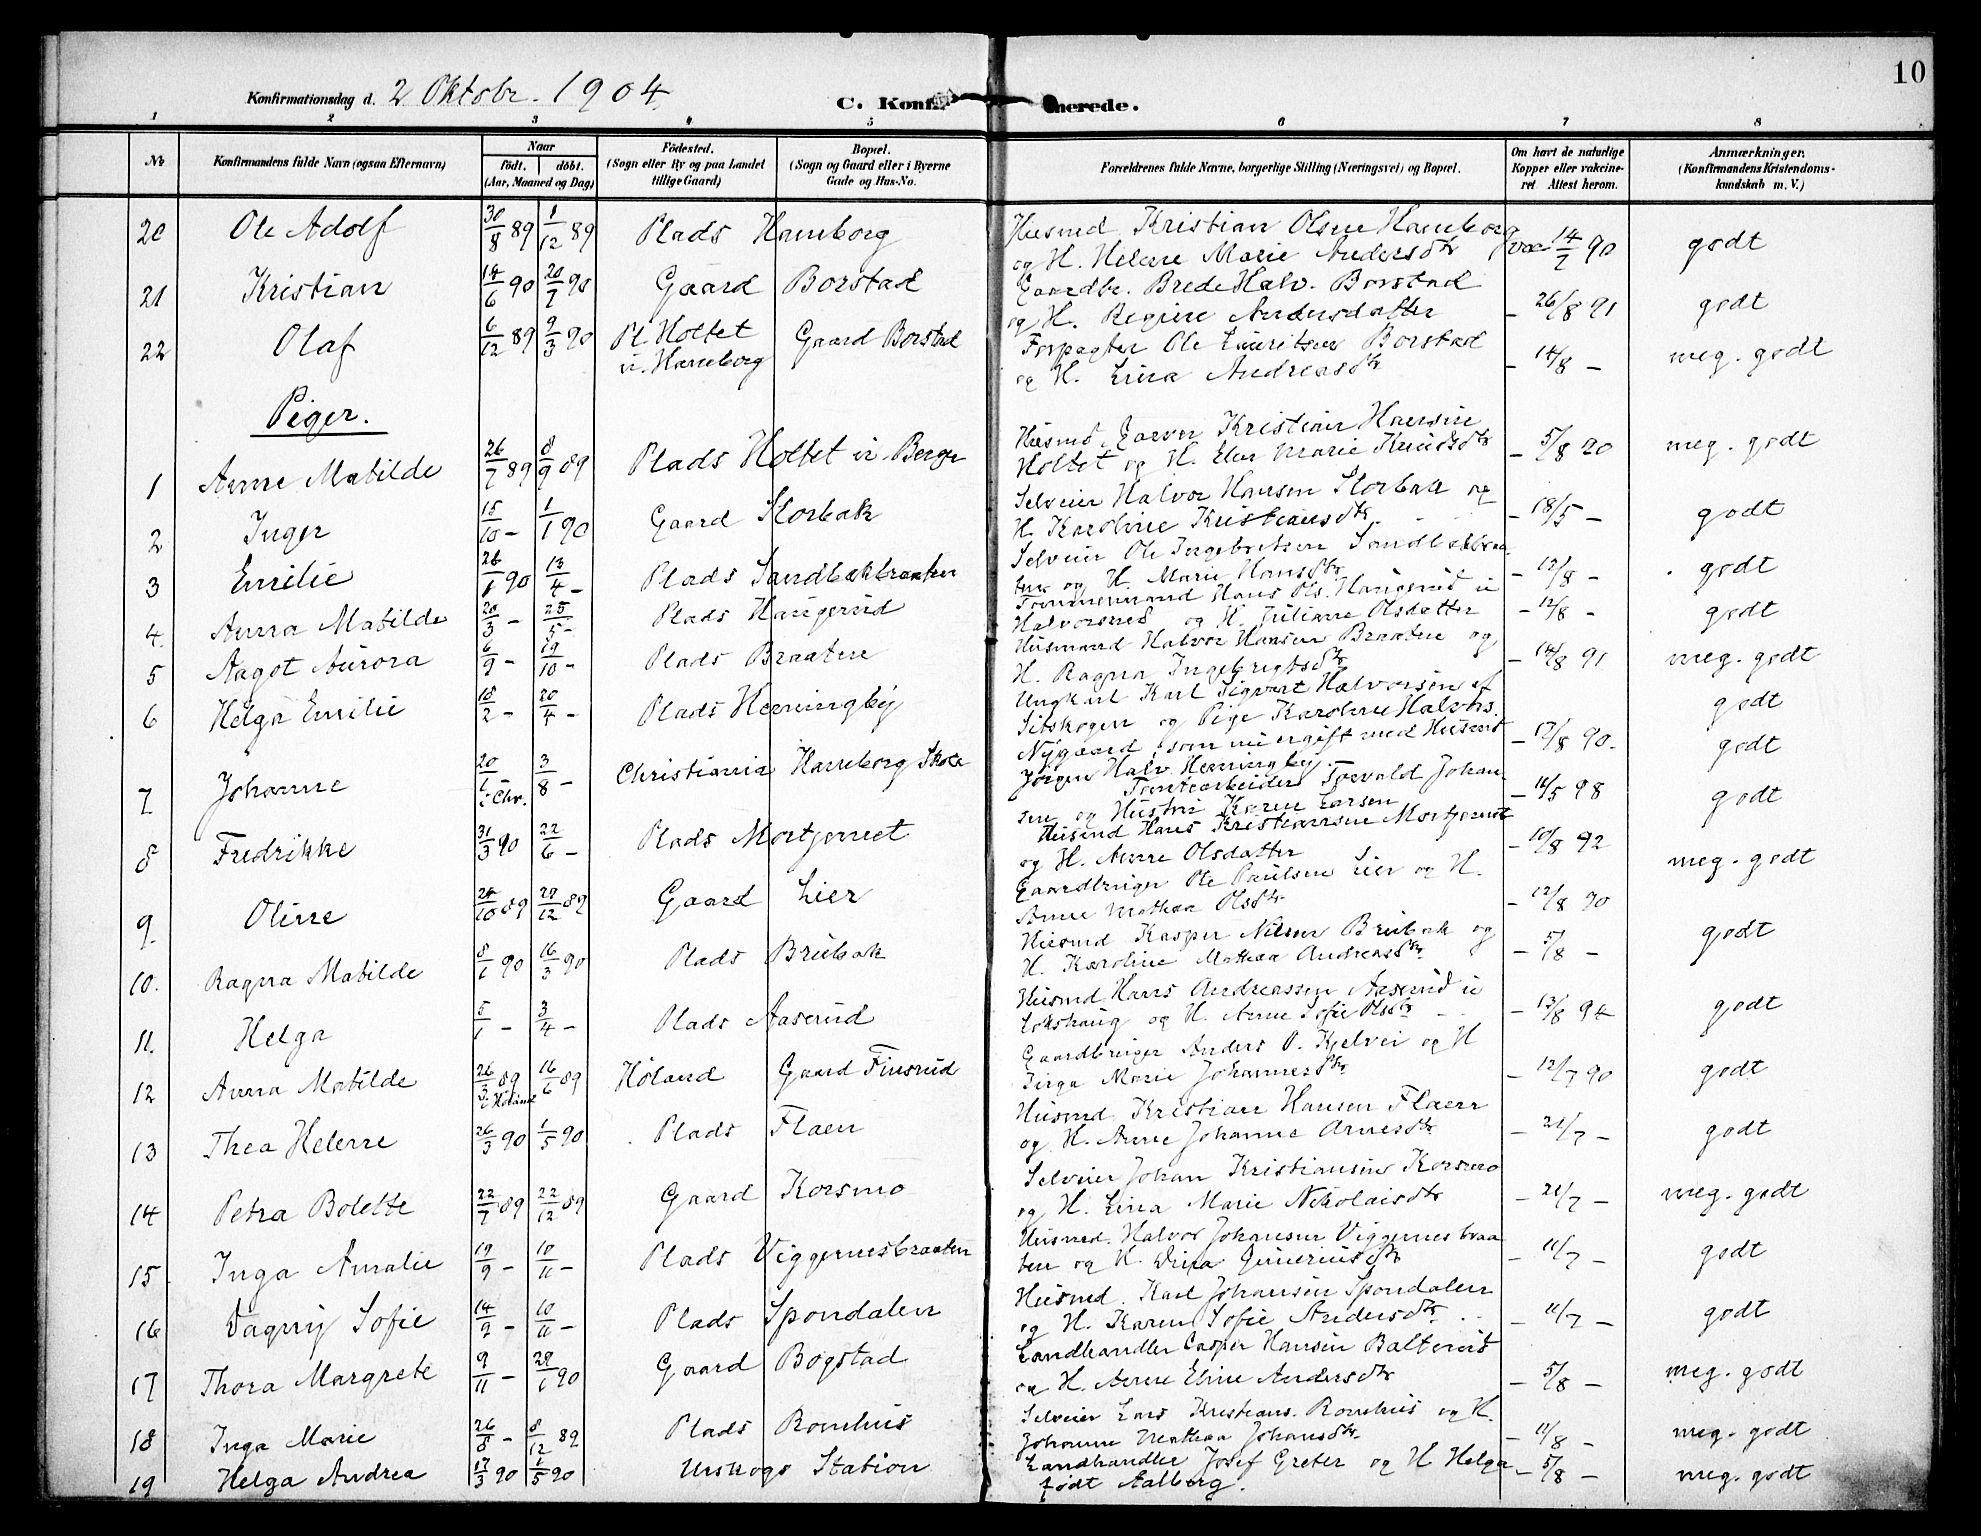 10
Konfirmationsdag d. 2 Oktobr. 1904.
C. Konfirmerede.
1 2 3 4 5 6 7 8
No
Konfirmandens fulde Navn (ogsaa Efternavn)
Naar
født. døbt.
(Aar, Maaned og Dag)
Fødested.
(Sogn eller By og paa Landet
tillige Gaard)
Bopæl.
(Sogn og Gaard eller i Byerne
Gade og Hus-No.
Forældrenes fulde Navne, borgerlige Stilling (Næringsvei) og Bopæl.
Om havt de naturlige
Kopper eller vakcine-
ret Attest herom.
Anmærkninger.
(Konfirmandens Kristendoms-
kundskab m. V.)
20 Ole Adolf 30/8 89 1/12 89 Plads Haneborg Husmd Kristian Olsen Haneborg vac 14/7 90 godt
og H. Helene Marie Andersdtr
21 Kristian 14/6 90 20/7 90 Gaard Borstad Gaardbr. Brede Halv. Borstad - 26/8 91 godt
og H. Regine Andersdatter
22 Olaf 6/12 89 9/3 90 Pl. Holtet Gaard Borstad Forpagter Ole Lauritsen Borstad - 14/8 - meg. godt
u. Haneborg og H. Lina Andreasdtr
Piger.
1 Anne Matilde 26/7 89 8/9 89 Plads Holtet u. Berger Husmd. Garver Kristian Hansen - 5/8 90 meg. godt
Holtet og H. Elen Marie Knudsdtr
2 Inger 15/10 - 1/1 90 Gaard Storbak Selveier Halvor Hansen Storbak og - 18/5 - godt
H. Karoline Kristiansdtr
3 Emilie 26/1 90 13/4 - Plads Sandbækbraaten Selveier Ole Ingebretsen Sandbækbraa - 12/8 - godt
ten og H. Marie Hansdtr
4. Anna Matilde 20/3 - 25/5 - Plads Haugerud Tømmermand Hans Ols. Haugerud u - 12/8 - godt
Halvorsrud og H. Juliane Olsdatter
5 Aagot Aurora 6/9 - 19/10 - Plads Braaten Husmand Halvor Hansen Braaten og - 14/8 91 meg. godt
H. Ragna Ingebrigtsdtr
6 Helga Emilie 18/2 - 20/4 - Plads Henningbøj Ungkarl Karl Sigvart Halvorsen af godt
Sitskogen og Pige Karoline Halvors.
Nygaard, som nu er gift med Husmd - 17/8 90. godt
Jørgen Halv. Henningbøj
7 Johanne 20/1 - 3/8 - Christiania Haneborg Skole Tomtearbeider Torvald Johan - 11/5 98 godt
i Chr. sen og Hustru Karen Larsen
8 Fredrikke 31/3 90 22/6 - Plads Mortjernet Husmd Hans Kristiansen Mortjernet - 10/8 92 meg. godt
og H. Anne Olsdatter
9. Oline 24/10 89 29/12 89 Gaard Lier Gaardbruger Ole Paulsen Lier og H. - 12/8 90 godt
Anne Mathea Olsdtr
10. Ragna Matilde 8/1 90 16/3 90 Plads Brubak Husmd Kasper Nilsen Brubak og - 5/8 -
H. Karoline Mathea Andreasdtr
11. Helga 5/1 - 3/4 - Plads Aaserud Husmd Hans Andreassen Aaserud u - 13/8 94 godt
Lokshaug og H. Anne Sofie Olsdtr
12 Anna Matilde 26/3 89 16/6 89 Høland Gaard Finsrud Gaardbruger Anders O. Kjelvei og H - 12/7 90 godt
i Høland Inga Marie Johannesdtr
13 Thea Helene 26/3 90 1/5 90 Plads Flaen Husmd Kristian Hansen Flaen - 21/7 - godt
og H. Anne Johanne Arnesdtr
14 Petra Bolette 22/7 89 22/12 89 Gaard Korsmo Selveier Johan Kristiansen Korsmo - 21/7 - meg. godt
og H. Lina Marie Nikolaisdtr
15 Inga Amalie 19/9 - 10/11 - Plads Viggernesbraaten Husmd. Halvor Johansen Viggernesbraa - 11/7 - godt
ten og H. Dina Guneriusdtr
16 Dagny Sofie 14/9 - 10/11 - Plads Spondalen Husmd. Karl Johansen Spondalen - 11/7 - godt
og H. Karen Sofie Andersdtr
17 Thora Margrete 9/11 - 28/1 90 Gaard Bogstad Landhandler Casper Hansen Balterud - 5/8 - meg. godt
og H. Anne Eline Andersdtr
18 Inga Marie 26/8 - 8/12 89 Plads Romhus Selveier Lars Kristians. Romhus og H. - 11/8 - meg. godt
Johanne Mathea Johansdtr
19 Helga Andrea 17/3 90 1/5 90 Urskogs Station Landhandler Josef Greter og H Helga - 5/8 - meg. godt
født Aalborg.